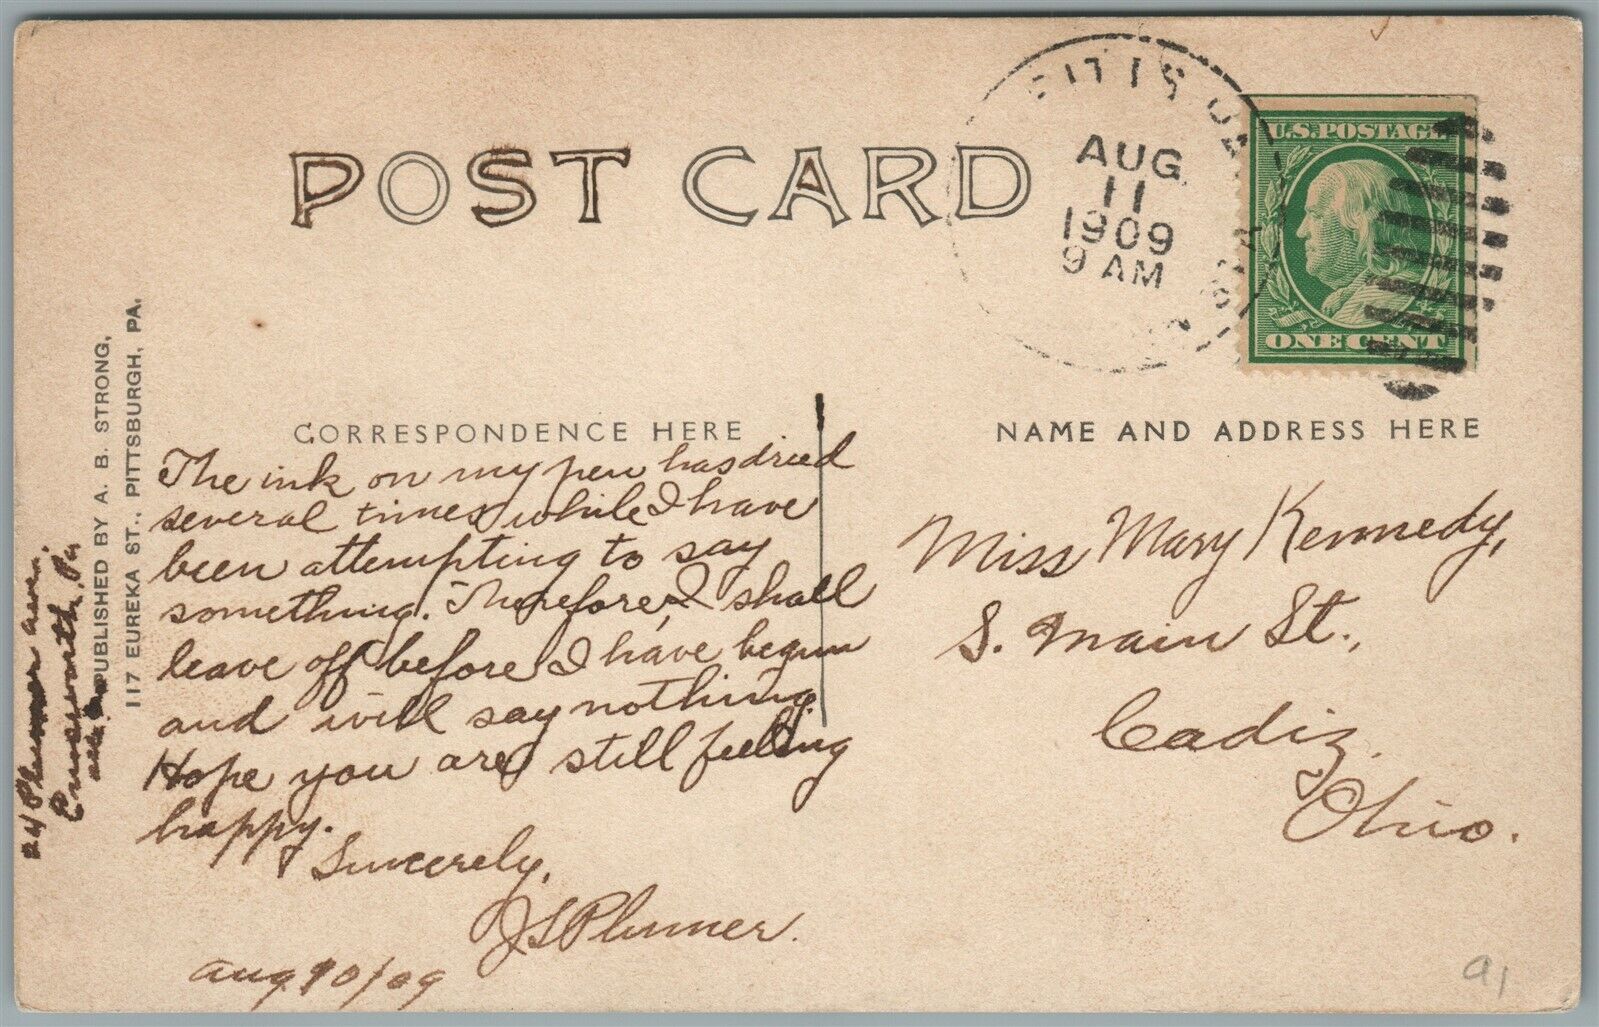 POST CARD
AUG
11
1909
9 AM
U.S. POSTAGE
ONE CENT
CORRESPONDENCE HERE
NAME AND ADDRESS HERE
The ink on my pen has dried
several times while I have
been attempting to say
something. Therefore, I shall
leave off before I have begun
and will say nothing.
Hope you are still feeling
happy.
Sincerely,
JSPlummer.
Aug 10/09
Miss Mary Kennedy,
S. Main St.,
Cadiz,
Ohio.
PUBLISHED BY A. B. STRONG,
117 EUREKA ST., PITTSBURGH, PA.
24 Plummer
Emsworth, Pa
91